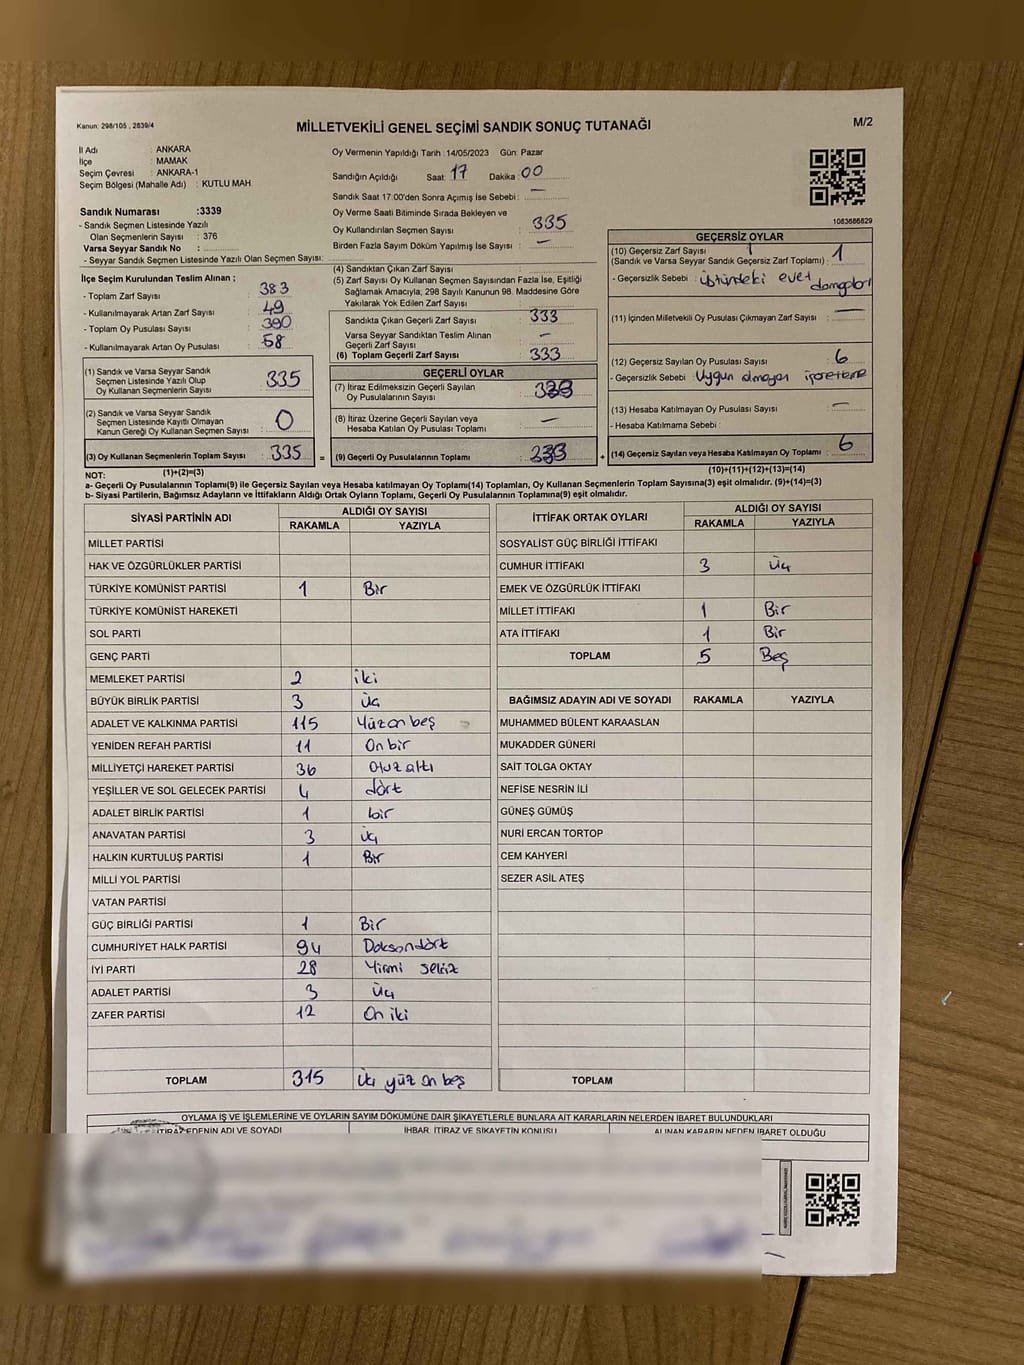 Kanun: 298/105 , 2839/4
MİLLETVEKİLİ GENEL SEÇİMİ SANDIK SONUÇ TUTANAĞI
M/2
İl Adı : ANKARA
İlçe : MAMAK
Seçim Çevresi : ANKARA-1
Seçim Bölgesi (Mahalle Adı) : KUTLU MAH.
Sandık Numarası :3339
- Sandık Seçmen Listesinde Yazılı
Olan Seçmenlerin Sayısı : 376
Varsa Seyyar Sandık No :
- Seyyar Sandık Seçmen Listesinde Yazılı Olan Seçmen Sayısı:
İlçe Seçim Kurulundan Teslim Alınan ;
- Toplam Zarf Sayısı : 383
- Kullanılmayarak Artan Zarf Sayısı : 49
- Toplam Oy Pusulası Sayısı : 390
- Kullanılmayarak Artan Oy Pusulası : 58
(1) Sandık ve Varsa Seyyar Sandık
Seçmen Listesinde Yazılı Olup
Oy Kullanan Seçmenlerin Sayısı : 335
(2) Sandık ve Varsa Seyyar Sandık
Seçmen Listesinde Kayıtlı Olmayan
Kanun Gereği Oy Kullanan Seçmen Sayısı : 0
(3) Oy Kullanan Seçmenlerin Toplam Sayısı : 335 =
(1)+(2)=(3)
Oy Vermenin Yapıldığı Tarih : 14/05/2023 Gün: Pazar
Sandığın Açıldığı Saat: 17 Dakika : 00
Sandık Saat 17:00'den Sonra Açımış İse Sebebi : —
Oy Verme Saati Bitiminde Sırada Bekleyen ve
Oy Kullandırılan Seçmen Sayısı : 335
Birden Fazla Sayım Döküm Yapılmış İse Sayısı : —
(4) Sandıktan Çıkan Zarf Sayısı :
(5) Zarf Sayısı Oy Kullanan Seçmen Sayısından Fazla İse, Eşitliği
Sağlamak Amacıyla, 298 Sayılı Kanunun 98. Maddesine Göre
Yakılarak Yok Edilen Zarf Sayısı :
Sandıkta Çıkan Geçerli Zarf Sayısı : 333
Varsa Seyyar Sandıktan Teslim Alınan
Geçerli Zarf Sayısı : —
(6) Toplam Geçerli Zarf Sayısı : 333
GEÇERLİ OYLAR
(7) İtiraz Edilmeksizin Geçerli Sayılan
Oy Pusulalarının Sayısı :
(8) İtiraz Üzerine Geçerli Sayılan veya
Hesaba Katılan Oy Pusulası Toplamı : —
(9) Geçerli Oy Pusulalarının Toplamı : +
1083686829
GEÇERSİZ OYLAR
(10) Geçersiz Zarf Sayısı 1
(Sandık ve Varsa Seyyar Sandık Geçersiz Zarf Toplamı) : 1
- Geçersizlik Sebebi : üstündeki evet
damgaları
(11) İçinden Milletvekili Oy Pusulası Çıkmayan Zarf Sayısı : —
(12) Geçersiz Sayılan Oy Pusulası Sayısı : 6
- Geçersizlik Sebebi : Uygun olmayan işaretleme
(13) Hesaba Katılmayan Oy Pusulası Sayısı : —
- Hesaba Katılmama Sebebi :
(14) Geçersiz Sayılan veya Hesaba Katılmayan Oy Toplamı : 6
(10)+(11)+(12)+(13)=(14)
NOT:
a- Geçerli Oy Pusulalarının Toplamı(9) ile Geçersiz Sayılan veya Hesaba Katılmayan Oy Toplamı(14) Toplamları, Oy Kullanan Seçmenlerin Toplam Sayısına(3) eşit olmalıdır. (9)+(14)=(3)
b- Siyasi Partilerin, Bağımsız Adayların ve İttifakların Aldığı Ortak Oyların Toplamı, Geçerli Oy Pusulalarının Toplamına(9) eşit olmalıdır.
SİYASİ PARTİNİN ADI ALDIĞI OY SAYISI
RAKAMLA YAZIYLA
MİLLET PARTİSİ
HAK VE ÖZGÜRLÜKLER PARTİSİ
TÜRKİYE KOMÜNİST PARTİSİ 1 Bir
TÜRKİYE KOMÜNİST HAREKETİ
SOL PARTİ
GENÇ PARTİ
MEMLEKET PARTİSİ 2 iki
BÜYÜK BİRLİK PARTİSİ 3 üç
ADALET VE KALKINMA PARTİSİ 115 Yüz on beş
YENİDEN REFAH PARTİSİ 11 On bir
MİLLİYETÇİ HAREKET PARTİSİ 36 Otuz altı
YEŞİLLER VE SOL GELECEK PARTİSİ 4 dört
ADALET BİRLİK PARTİSİ 1 bir
ANAVATAN PARTİSİ 3 üç
HALKIN KURTULUŞ PARTİSİ 1 Bir
MİLLİ YOL PARTİSİ
VATAN PARTİSİ
GÜÇ BİRLİĞİ PARTİSİ 1 Bir
CUMHURİYET HALK PARTİSİ 94 Doksandört
İYİ PARTİ 28 Yirmi sekiz
ADALET PARTİSİ 3 Üç
ZAFER PARTİSİ 12 On iki
TOPLAM 315 Üç yüz on beş
İTTİFAK ORTAK OYLARI ALDIĞI OY SAYISI
RAKAMLA YAZIYLA
SOSYALİST GÜÇ BİRLİĞİ İTTİFAKI
CUMHUR İTTİFAKI 3 Üç
EMEK VE ÖZGÜRLÜK İTTİFAKI
MİLLET İTTİFAKI 1 Bir
ATA İTTİFAKI 1 Bir
TOPLAM 5 Beş
BAĞIMSIZ ADAYIN ADI VE SOYADI RAKAMLA YAZIYLA
MUHAMMED BÜLENT KARAASLAN
MUKADDER GÜNERİ
SAİT TOLGA OKTAY
NEFİSE NESRİN İLİ
GÜNEŞ GÜMÜŞ
NURİ ERCAN TORTOP
CEM KAHYERİ
SEZER ASİL ATEŞ
TOPLAM
OYLAMA İŞ VE İŞLEMLERİNE VE OYLARIN SAYIM DÖKÜMÜNE DAİR ŞİKAYETLERLE BUNLARA AİT KARARLARIN NELERDEN İBARET BULUNDUKLARI
İTİRAZ EDENİN ADI VE SOYADI İHBAR, İTİRAZ VE ŞİKAYETİN KONUSU ALINAN KARARIN NEDEN İBARET OLDUĞU